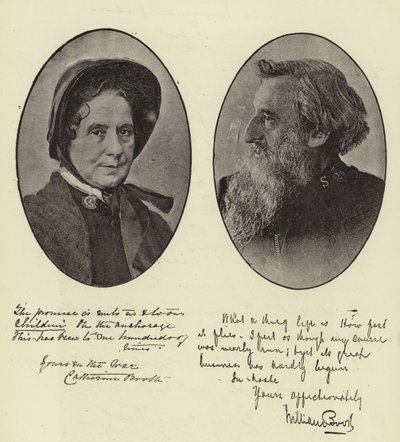 The promise is unto us & to our
Children Oh the anchorage
This has been to me hundreds of
times!
Yours in the War
Catherine Booth
What a thing life is How fast
it flies - I feel as though my course
was nearly run; & yet its great
business has hardly begun
In haste
Yours affectionately
William Booth
S